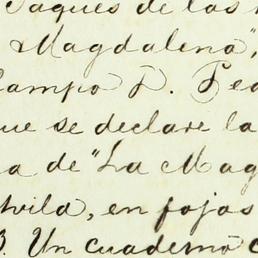 Jaques de las
Magdalena",
Campo P. Fe
que se declare la
a de "La Mag
vila, en fojas
3. Un cuaderno